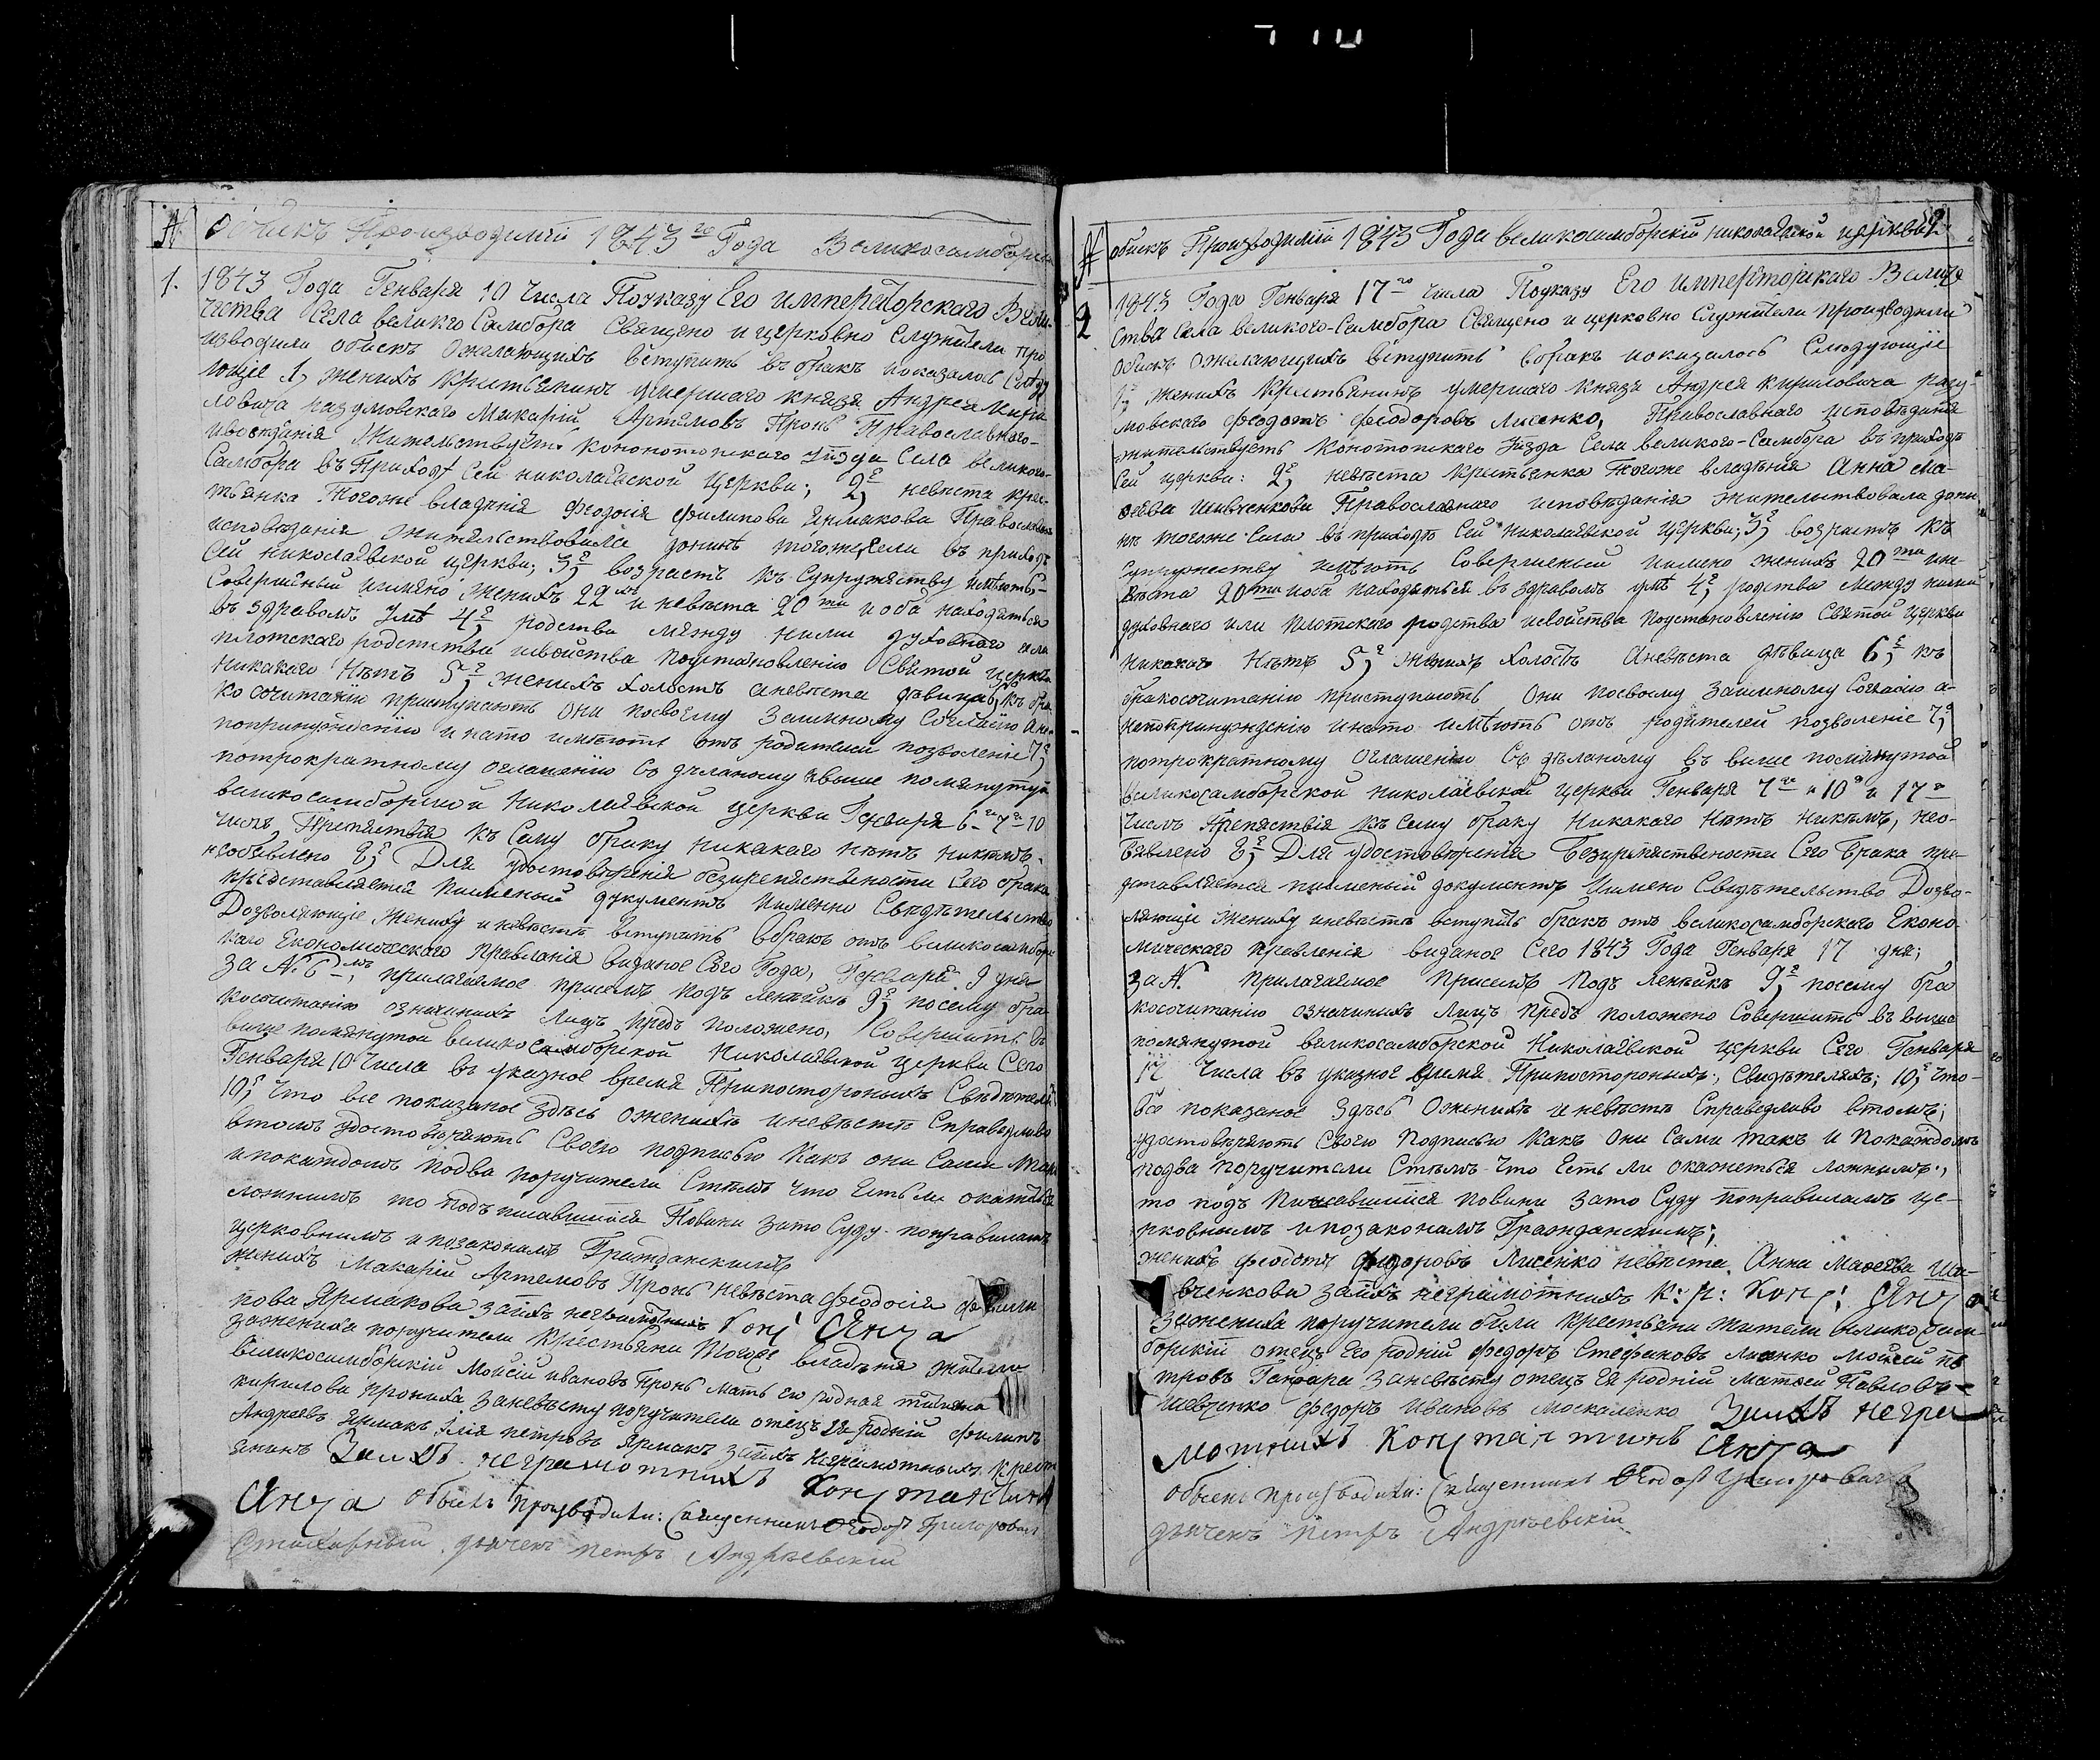 № обискъ Производимій 1843го Года Великосамборск
1. 1843 Года Генваря 10 Числа Поуказу Его императорского Вели-
чества Села великого Самбора Священо и церковно Служители про
изводили обискъ Ожелающихъ вступить въ бракъ показалось Следу
ющіе 1, женихъ крестьянинъ умершаго князя Андрея Кири
ловича разумовского Макарий Артемовъ Пронь Православного-
исведания Жительствуетъ Конопотского уизда Села великого-
Самбора въ Приходе Сей николаевской церкви; 2е, невеста крес-
тьянка Тогоже владенія Феодосія филипова Ярмакова Православна
исповеданія жительствовала донине тогожесела въ приходе
Сей николаевской церкви; 3е, возрастъ къ Супружеству имеютъ-
Совершеный имяно женихъ 22хъ и невеста 20ти и оба находятся
въ здравомъ Уме 4е, родства между ними духовного или
плотскаго родства исвойства поустановленію Святой церкви
Никакаго Нетъ 5е, женихъ холостъ аневеста девица 6, къ бра
косочитанію приступаютъ Они посвоему заимному Согласію Ане
попринужденію инато имеютъ отъ родителей позволеніе 7е,
потрократному оглашенію Со деланому ввыше помянутуй
великосамборской Николаевской церкви Генваря 6-го 7-го 10
числъ Препяствія къ Сему браку никакаго нетъ никемъ-
несобявлено 8е, Для удостоверенія безпрепяственности Сего брака
представляется писменый документъ Именно Сведетельство
Дозволяющіе Жениху иневесте вступить вбракъ отъ великосамбор
каго Економического Правланія виданое Сего Года, Генваря 9 дня
за №. 6мъ, прилагаемое присемъ подъ лентикъ 9е, посему бра-
косочитанію означеныхъ лицъ предъ положено, Совершить въ
више помянутой великосамборской Николаевской церкви Сего
Генваря 10 Числа въ указное время Припостороныхъ Сведетелей
10е, Что все показаное Здесь оженихе иневесте Справедливо
втомъ удостоверяютъ Своею подписью Какъ они Сами Такъ
ипокаждомъ подва поручители Стемъ что Естьли окажется
ложнимъ то подъписавшіися Повини зато Суду поправиламъ
церковнимъ и позаконамъ Гражданскимъ
женихъ Макарій Артемовъ Пронь Невеста феодосія фили
пова Ярмакова заихъ неграмотныхъ Конс Янча
зажениха поручители Крестьяни Тогоже владенія Жители
великосамборскій Мойсій ивановъ Пронь мать его родная татияна
кирилова прониха заневесту поручители отецъ Ея родній филипъ
Андреевъ Ярмакъ илія петровъ Ярмакъ заихъ неграмотныхъ крест
янинъ Заихъ неграмотнихъ Константинъ
Янча обыскъ производили: Священникъ Феодоръ Григорович
дячекъ петръ Андреевскій
№ обискъ Производимій 1843 Года великосамборскій николаевской церкви
2 1843 Года Генваря 17го числа Поуказу Его императорскаго Величе
Ства Села великого-Самбора Священо и церковно Служители Производили
Обискъ Ожелающихъ вступить вбракъ показалось Следующіе
1, женихъ Крестьянинъ умершаго князя Андрея кириловича разу-
мовского Федотъ Феодоровъ Лисенко, Православнаго исповеданія
жительствуетъ Конотопского Уизда Села великого-Самбора въ приходе
Сей церкви: 2е, невеста крестьянка Тогоже владенія Анна Ма-
феева Шевченкова Православнаго исповеданія жительствовала дони
не тогоже Села въ приходе Сей Николаевской церкви; 3е, возрастъ къ
Супружеству имеютъ Совершеный имяно женихъ 20ти не-
веста 20ти иоба находятся въ здравомъ уме 4е, родства между ними
духовнаго или плотского родства исвойства поустановленію Святой церкви
Никакого Нетъ 5е, женихъ холостъ аневеста девица 6е, къ
бракосочитанію приступаютъ Они посвоему заимному Согласію а-
непопринужденію инато имеютъ отъ родителей позволеніе 7е,
потрократному Оглашенію Со деланому въ више помянутой
великосамборской николаевской церкви Генваря 7го и 10го и 17го
Числъ Препяствія къ Сему браку Никакаго Нетъ никемъ, нео-
бявлено 8е, Для удостоверенія безпрепяственности Сего брака пре-
дставляется писменый документъ Имяно Сведетельство Дозво-
ляющіе Жениху иневесте вступить бракъ отъ великосамборского Еконо-
мического правленія виданое Сего 1843 Года Генваря 17 дня;
за №. прилагаемое Присемъ Подъ Лентикъ 9е, посему бра
косочитанію означиныхъ Лицъ Предъ положено Совершить въ више
помянутой великосамборской Николаевской церкви Сего Генваря
17 Числа въ указное время Припостороныхъ, Свидетеляхъ; 10е, что-
все показаное Здесь Оженихе иневесте Справедливо втомъ;
удостоверяютъ Своею Подписью Какъ Они Сами такъ и Покаждомъ
подва поручители Стемъ что Естьли окажеться ложнимъ,
то подъ Писавшиися повини зато Суду поправиламъ це-
рковнимъ и позаконамъ Гражданскимъ;
женихъ феодотъ федоровъ Лисенко невеста Анна Мафеева Ше-
вченкова заихъ неграмотныхъ К: р: Конс: Янча
Зажениха поручители били крестьяни жители великосам-
борскій отецъ Его родній федоръ Стефановъ лисенко Мойсей пе
тровъ Ганжара заневесту отецъ Ея родній матвей Павловъ-
шевченко федоръ Ивановъ москаленко Заихъ негра
мотнихъ Константинъ Янча
обыскъ производили: Священникъ Феодоръ Григорович
дьячекъ петръ Андреевскій